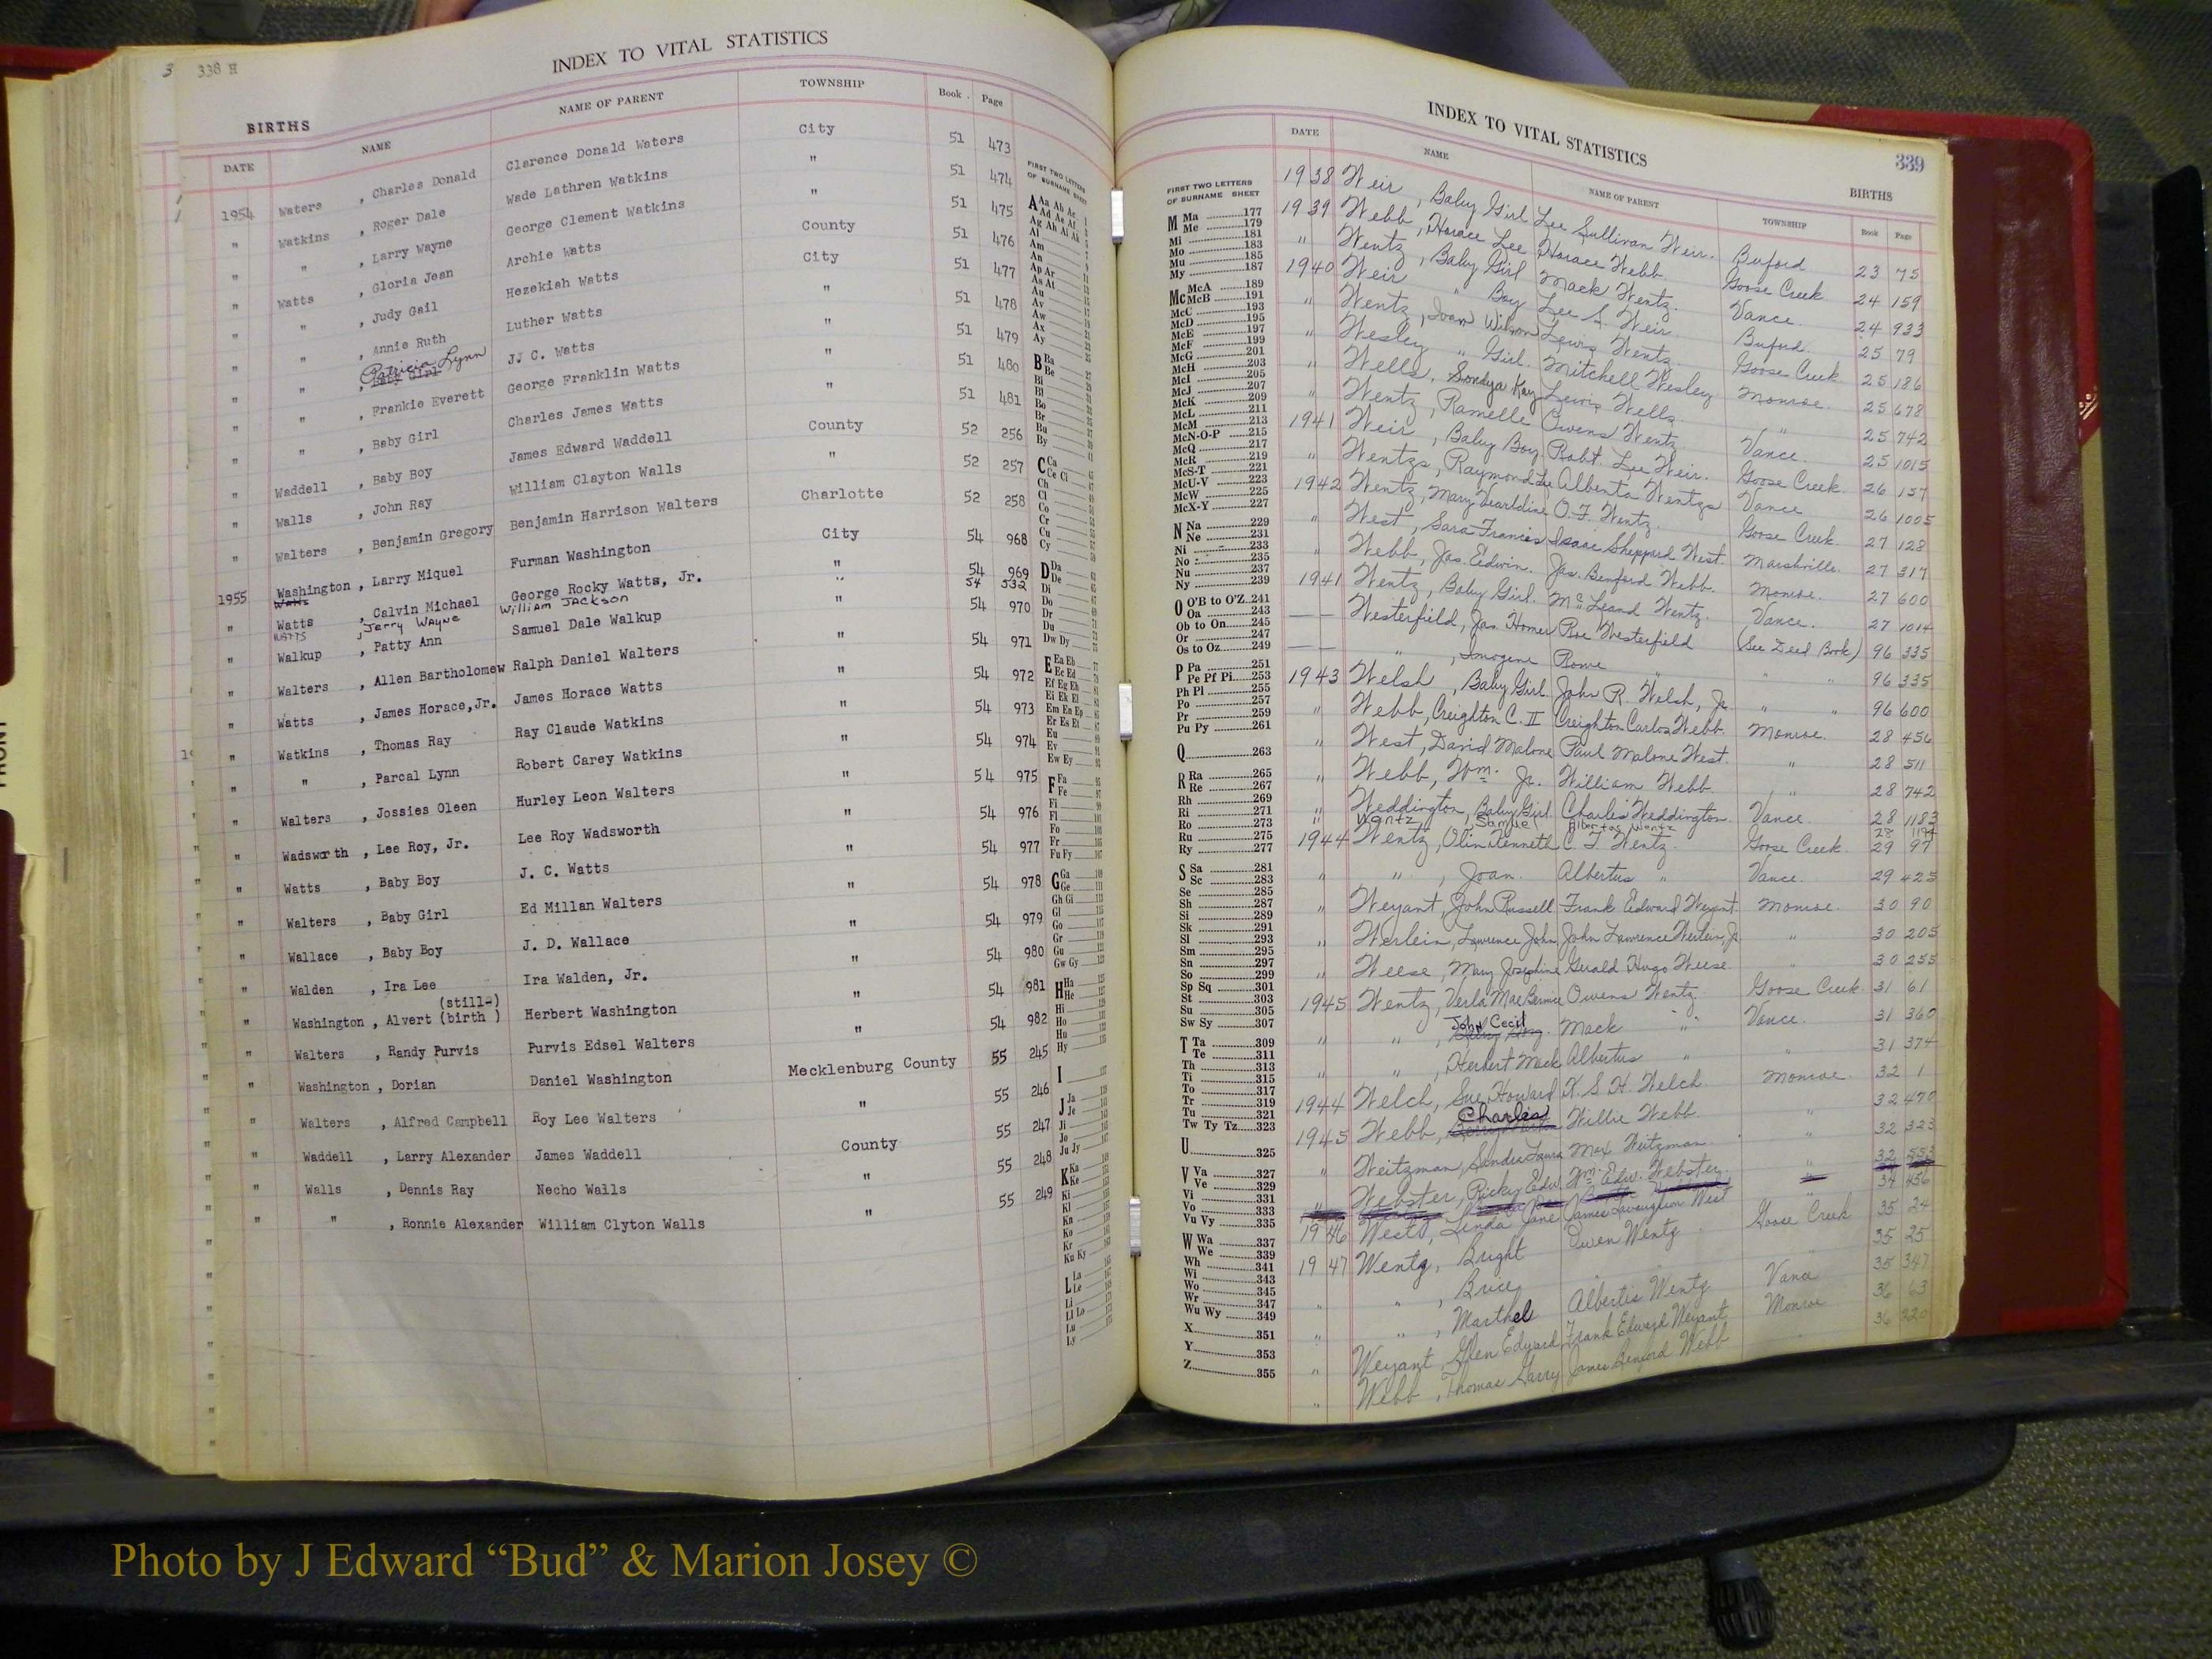 3 338 H
INDEX TO VITAL STATISTICS
BIRTHS
DATE NAME NAME OF PARENT TOWNSHIP Book Page
1954 Waters , Charles Donald Clarence Donald Waters City 51 473
" Watkins , Roger Dale Wade Lathren Watkins " 51 474
" " , Larry Wayne George Clement Watkins " 51 475
" Watts , Gloria Jean Archie Watts County 51 476
" " , Judy Gail Hezekiah Watts City 51 477
" " , Annie Ruth Luther Watts " 51 478
" " , Patricia Lynn JJ C. Watts " 51 479
" " , Frankie Everett George Franklin Watts " 51 480
" " , Baby Girl Charles James Watts " 51 481
" Waddell , Baby Boy James Edward Waddell County 52 256
" Walls , John Ray William Clayton Walls " 52 257
" Walters , Benjamin Gregory Benjamin Harrison Walters Charlotte 52 258
1955 Washington , Larry Miquel Furman Washington City 54 968
" Watts , Calvin Michael George Rocky Watts, Jr. " 54 969
Watts , Jerry Wayne William Jackson " 54 532
" Walkup , Patty Ann Samuel Dale Walkup " 54 970
" Walters , Allen Bartholomew Ralph Daniel Walters " 54 971
" Watts , James Horace, Jr. James Horace Watts " 54 972
" Watkins , Thomas Ray Ray Claude Watkins " 54 973
" " , Parcal Lynn Robert Carey Watkins " 54 974
" Walters , Jossies Oleen Hurley Leon Walters " 54 975
" Wadsworth , Lee Roy, Jr. Lee Roy Wadsworth " 54 976
" Watts , Baby Boy J. C. Watts " 54 977
" Walters , Baby Girl Ed Millan Walters " 54 978
" Wallace , Baby Boy J. D. Wallace " 54 979
" Walden , Ira Lee Ira Walden, Jr. " 54 980
(still-)
" Washington , Alvert (birth ) Herbert Washington " 54 981
" Walters , Randy Purvis Purvis Edsel Walters " 54 982
" Washington , Dorian Daniel Washington Mecklenburg County 55 245
" Walters , Alfred Campbell Roy Lee Walters " 55 246
" Waddell , Larry Alexander James Waddell County 55 247
" Walls , Dennis Ray Necho Walls " 55 248
" " , Ronnie Alexander William Clyton Walls " 55 249
FIRST TWO LETTERS
OF SURNAME SHEET
M Ma 177
Me 179
Mi 181
Mo 183
Mu 185
My 187
Mc McA 189
McB 191
McC 193
McD 195
McE 197
McF 199
McG 201
McH 203
McI 205
McJ 207
McK 209
McL 211
McM 213
McN-O-P 215
McQ 217
McR 219
McS-T 221
McU-V 223
McW 225
McX-Y 227
N Na 229
Ne 231
Ni 233
No 235
Nu 237
Ny 239
O O'B to O'Z 241
Oa 243
Ob to On 245
Or 247
Os to Oz 249
P Pa 251
Pe Pf Pi 253
Ph Pl 255
Po 257
Pr 259
Pu Py 261
Q 263
R Ra 265
Re 267
Rh 269
Ri 271
Ro 273
Ru 275
Ry 277
S Sa 281
Sc 283
Se 285
Sh 287
Si 289
Sk 291
Sl 293
Sm 295
Sn 297
So 299
Sp Sq 301
St 303
Su 305
Sw Sy 307
T Ta 309
Te 311
Th 313
Ti 315
To 317
Tr 319
Tu 321
Tw Ty Tz 323
U 325
V Va 327
Ve 329
Vi 331
Vo 333
Vu Vy 335
W Wa 337
We 339
Wh 341
Wi 343
Wo 345
Wr 347
Wu Wy 349
X 351
Y 353
Z 355
INDEX TO VITAL STATISTICS 339
BIRTHS
DATE NAME NAME OF PARENT TOWNSHIP Book Page
1938 Weir , Baby Girl Lee Sullivan Weir. Buford 23 75
1939 Webb , Horace Lee Horace Webb Goose Creek 24 159
" Wentz , Baby Girl Mack Wentz. Vance. 24 933
1940 Weir " Boy Lee S. Weir. Buford. 25 79
" Wentz , Joan Wilson Lewis Wentz. Goose Creek 25 186
" Wesley " Girl. Mitchell Wesley Monroe. 25 678
" Wells, Sondya Kay Lewis Wells " 25 742
" Wentz , Ramelle Owens Wentz Vance 25 1015
1941 Weir , Baby Boy. Robt. Lee Weir. Goose Creek. 26 157
" Wentzs, Raymond Lee Alberta Wentzs Vance 26 1005
1942 Wentz, Mary Gearldine O. F. Wentz. Goose Creek. 27 128
" West , Sara Francis Isaac Sheppard West. Marshville. 27 317
" Webb, Jas. Edwin. Jas. Benford Webb. Monroe. 27 600
1941 Wentz, Baby Girl. McLeand Wentz. Vance. 27 1014
—— Westerfield, Jas. Homer Roe Westerfield (See Deed Book) 96 335
—— " , Imogene Rowe " " 96 335
1943 Welsh , Baby Girl. John R. Welsh, Jr. " " 96 600
" Webb, Creighton C. II Creighton Carlos Webb. Monroe. 28 456
" West, David Malone Paul Malone West. " 28 511
" Webb, Wm. Jr. William Webb. " 28 742
" Weddington, Baby Girl Charles Weddington. Vance. 28 1183
" Wentz, Samuel Albertas Wentz 28 1194
1944 Wentz, Olin Kenneth C. F. Wentz. Goose Creek. 29 97
" " , Joan. Albertus " Vance. 29 425
" Weyant, John Russell Frank Edward Weyant. Monroe. 30 90
" Werlein, Lawrence John, John Lawrence Werlein, Jr " 30 205
" Weese, Mary Josephine Gerald Hugo Weese. " 30 255
1945 Wentz, Verla Mae Bernice Owens Wentz Goose Creek. 31 61
" " , John Cecil Mack " Vance. 31 360
" " , Herbert Mack Albertus " " 31 374
1944 Welch, Sue Howard K. S. H. Welch. Monroe. 32 1
1945 Webb, Charles Willie Webb. " 32 470
" Weitzman, Sandra Laura Max Weitzman. " 32 323
" Webster, Ricky Edw. Wm. Edw. Webster. "
1946 West, Linda Jane James Lavaughn West 34 456
1947 Wentz, Bright Owen Wentz Goose Creek 35 24
" " , Brice " " 35 25
" " , Marthel Albertis Wentz Vance 35 347
" Weyant, Glen Edward Frank Edward Weyant Monroe 36 63
" Webb , Thomas Harry James Benford Webb " 36 320
Photo by J Edward “Bud” & Marion Josey ©